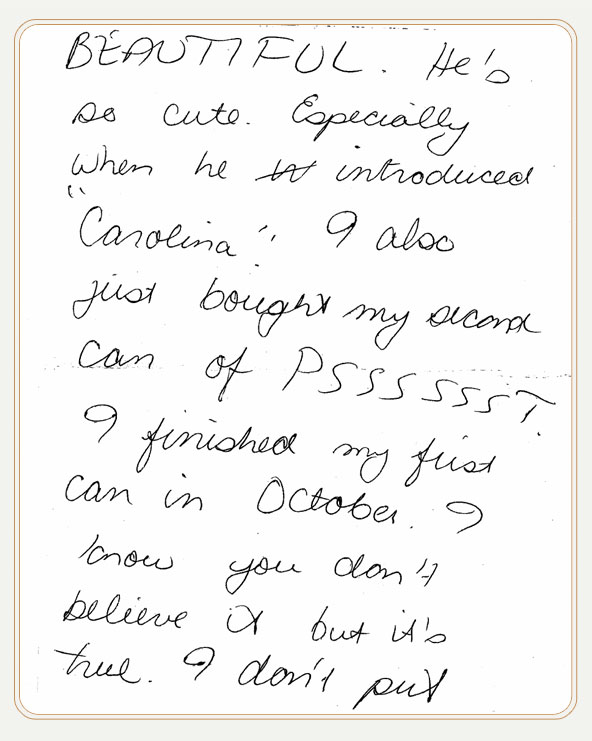 BEAUTIFUL. He's
so cute. Especially
when he introduced
"Carolina". I also
just bought my second
can of PSSSSSST.
I finished my first
can in October. I
know you don't
believe it but it's
true. I don't put